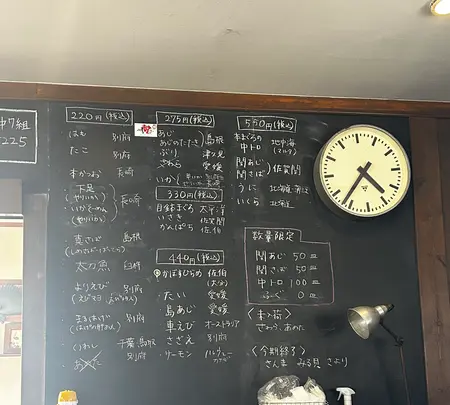 中7組
7225
220円(税込)
はも 別府
たこ 別府
本かつお 長崎
下足
(やりいか)
長崎
(やりいか)
真さば 島根
太刀魚 臼杵
よりえび 別府
まるあげ 別府
いわし 千葉・鳥取
別府
275円(税込)
あじ 島根
あじのたたき
ぶり 津久見
さわら 愛媛
いか
330円(税込)
太平洋
いさき 佐賀関
かんぱち 佐伯
440円(税込)
かぼすひらめ 佐伯
(大分)
たい 愛媛
島あじ 愛媛
車えび オーストラリア
さざえ 別府
サーモン
550円(税込)
本まぐろ
中トロ 地中海
(マルタ)
関あじ
関さば 佐賀関
うに 北海道
いくら 北海道
数量限定
関あじ 50
関さば 50
中トロ 100
ふぐ 0
<本入荷>
<今期終了>
さんま みる貝 さより